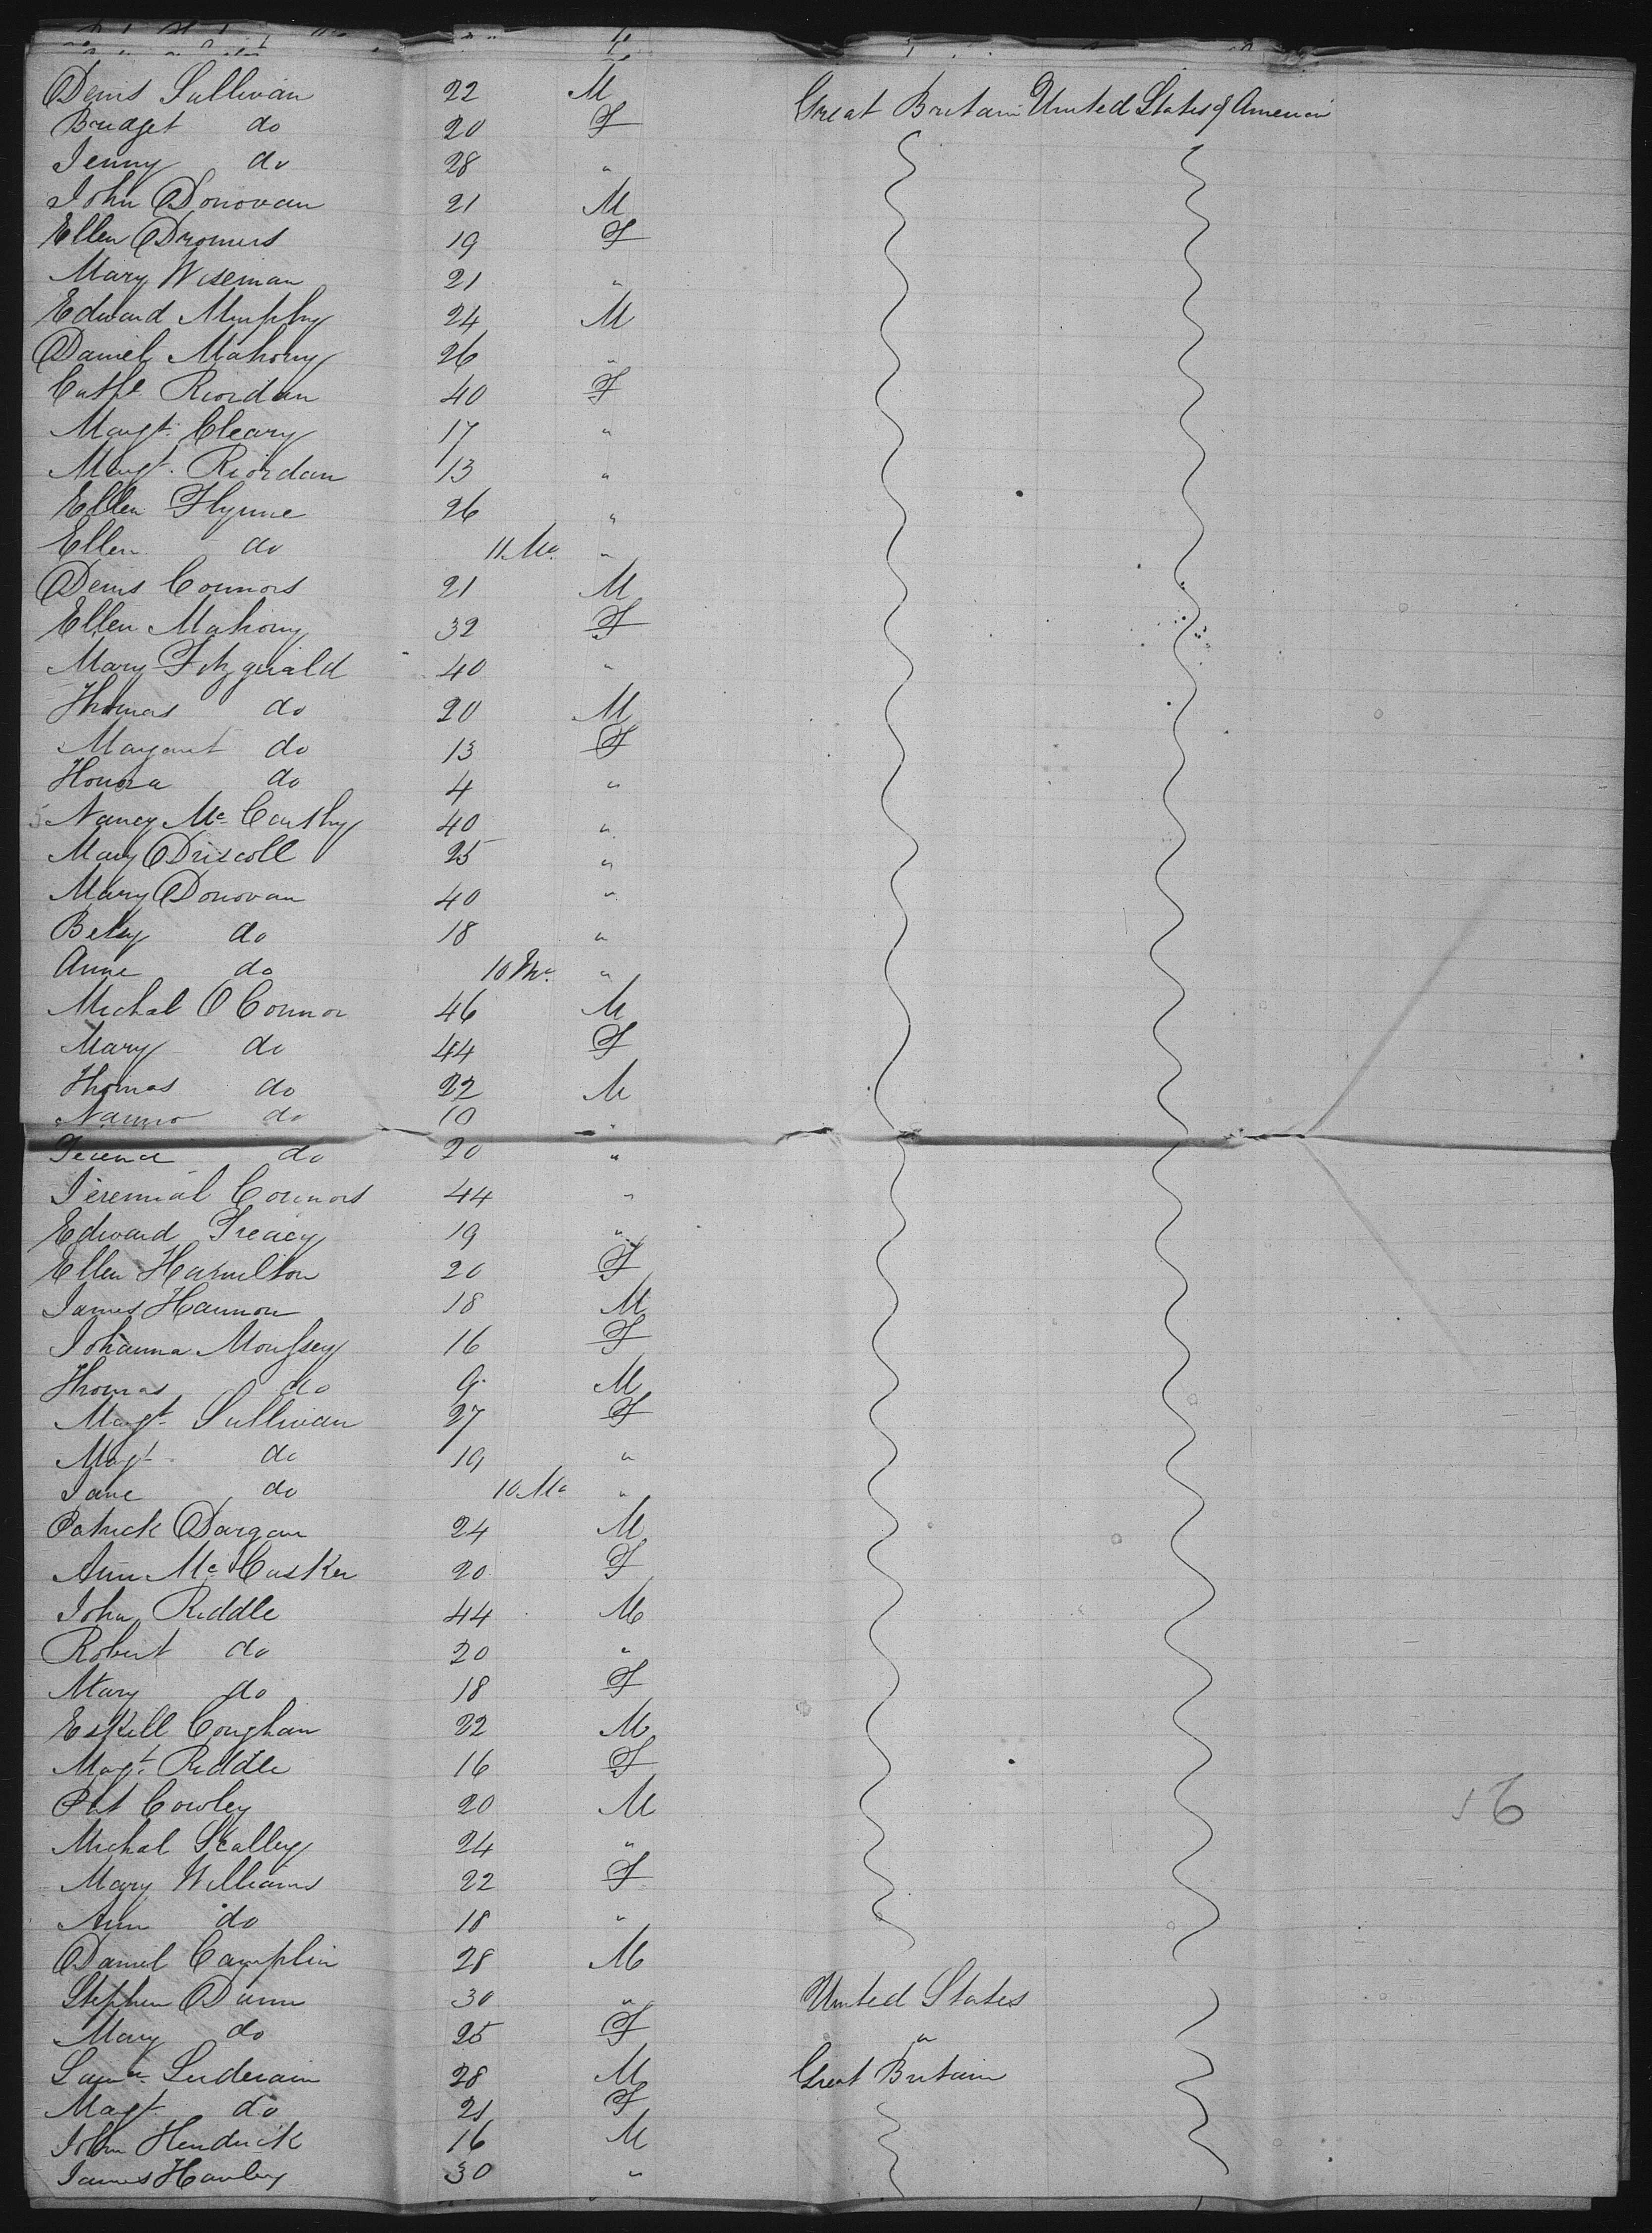 Denis Sullivan 22 M Great Britain United States of America
Bridget do 20 F
Jenny do 28 "
John Donovan 21 M
Ellen 19 F
Mary Wiseman 21 "
Edward Murphy 24 M
Daniel Mahony 26 "
Cathe Riordan 40 F
Margt. Cleary 17 "
Margt. Riordan 13 "
Ellen Flynne 26 "
Ellen do 11 Mo "
Denis Connors 21 M
Ellen Mahony 32 F
Mary Fitzgerald 40 "
Thomas do 20 M
Margaret do 13 F
Honora do 4 "
Nancy Mc Carthy 40 "
Mary Driscoll 25 "
Mary Donovan 40 "
Betsy do 18 "
Anne do 10 Mo. "
Michal O Connor 46 M
Mary do 44 F
Thomas do 22 M
do 10 "
do 20 "
Jeremial Connors 44 "
Edward Treacy 19 "
Ellen Hamilton 20 F
James Hannon 18 M
Johanna 16 F
Thomas do 9 M
Margt. Sullivan 27 F
Magt. do 19 "
Jane do 10 Mo "
Patrick Dargan 24 M
Ann Mc Cusker 20 F
John Riddle 44 M
Robert do 20 "
Mary do 18 F
Coughan 22 M
Magt. Riddle 16 F
Pat Cowley 20 M
Michal Skalley 24 "
Mary Williams 22 F
Ann do 18 "
Daniel Camplin 28 M
Stephen Dunn 30 " United States
Mary do 25 F "
28 M Great Britain
Magt. do 21 F
John Hendrick 16 M
James Hanley 30 "
16